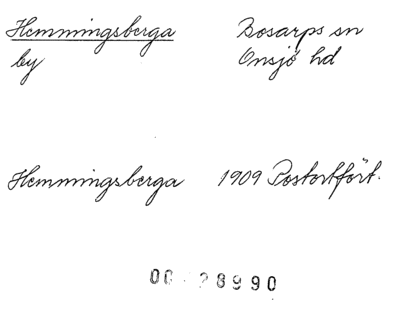 Hemmingsberga Bosarps sn
by Onsjö hd
Hemmingsberga 1909 Postortfört.
00 28990